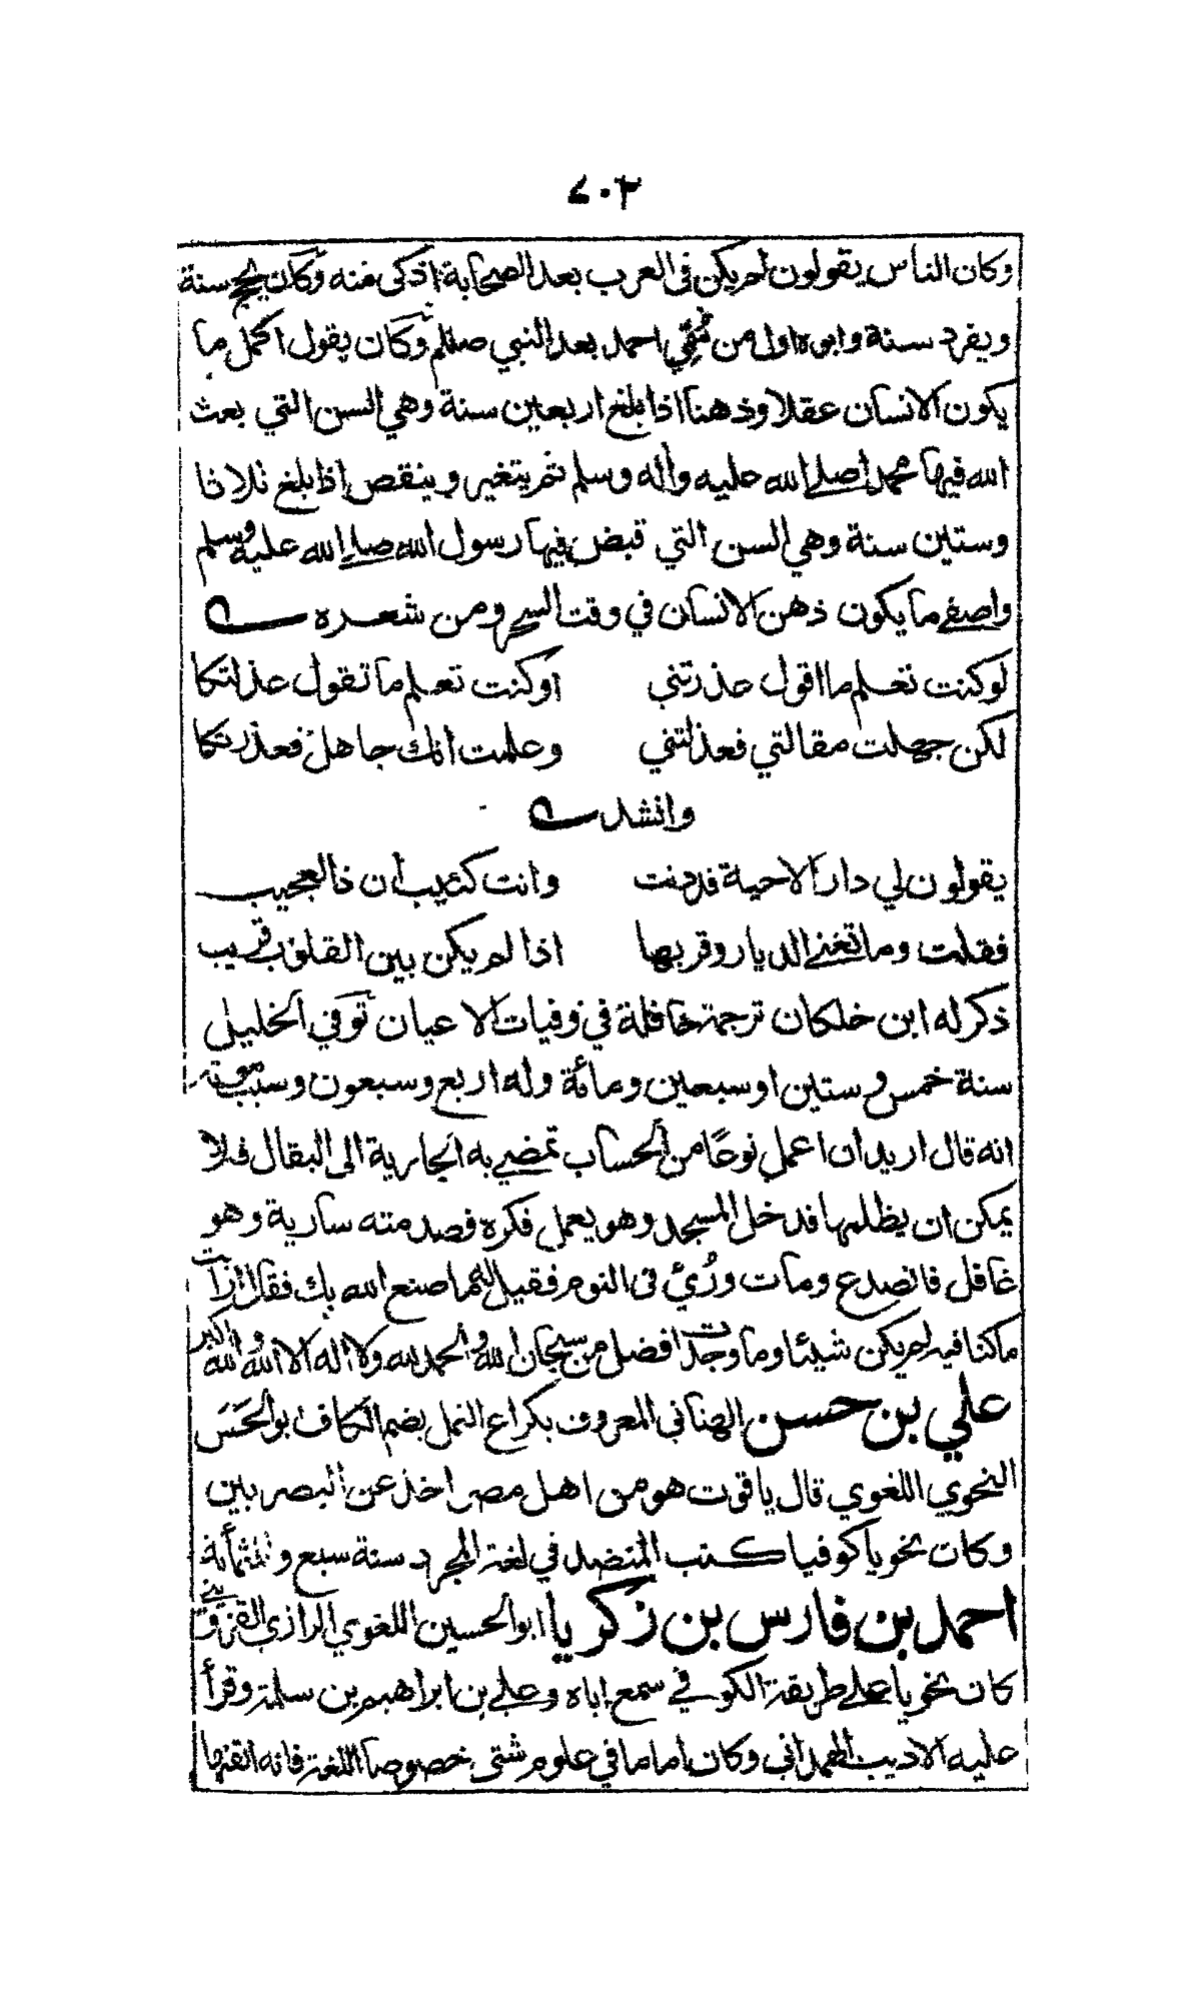 ٤٠٢
وكان الناس يقولون لم يكن في العرب بعد الصحابة اذكى منه وكان يحج سنة
ويفرد سنة وابوه اول من سُمّي احمد بعد النبي صللم وكان يقول اكمل ما
يكون الانسان عقلا وذهنا اذا بلغ اربعين سنة وهي السن التي بعث
الله فيها محمدا صلى الله عليه وآله وسلم ثم يتغير وينقص اذا بلغ ثلاثا
وستين سنة وهي السن التي قبض فيها رسول الله صلى الله عليه وسلم
واصفى ما يكون ذهن الانسان في وقت السحر ومن شعره
لو كنت تعلم ما اقول عذرتني او كنت تعلم ما تقول عذلتكا
لكن جهلت مقالتي فعذلتني وعلمت انك جاهل فعذرتكا
وانشد
يقولون لي دار الاحبة قد دنت وانت كئيب ان ذا لعجيب
فقلت وما تغني الديار وقربها اذا لم يكن بين القلوب قريب
ذكر له ابن خلكان ترجمة حافلة في وفيات الاعيان توفي الخليل
سنة خمس وستين او سبعين ومائة وله اربع وسبعون وسبب موته
انه قال اريد ان اعمل نوعًا من الحساب تمضي به الجارية الى البقال فلا
يمكن ان يظلمها فدخل المسجد وهو يعمل فكره فصدمته سارية وهو
غافل فانصدع ومات ورُئي في النوم فقيل له ما صنع الله بك فقال ارأيت
ما كنا فيه لم يكن شيئا وما وجدت افضل من سبحان الله والحمد لله ولا اله الا الله والله اكبر
علي بن حسن الهنائي المعروف بكراع النمل بضم الكاف ابو الحَسَن
النحوي اللغوي قال ياقوت هو من اهل مصر اخذ عن البصريين
وكان نحويا كوفيا كتب المنضد في لغة المجرد سنة سبع وثلثمأية
احمد بن فارس بن زكريا ابو الحسين اللغوي الرازي القزويني
كان نحويا على طريقة الكوفي سمع اباه وعلي بن ابراهيم بن سلمة وقرأ
عليه الاديب الهمداني وكان اماما في علوم شتى خصوصا اللغة فانه اتقنها